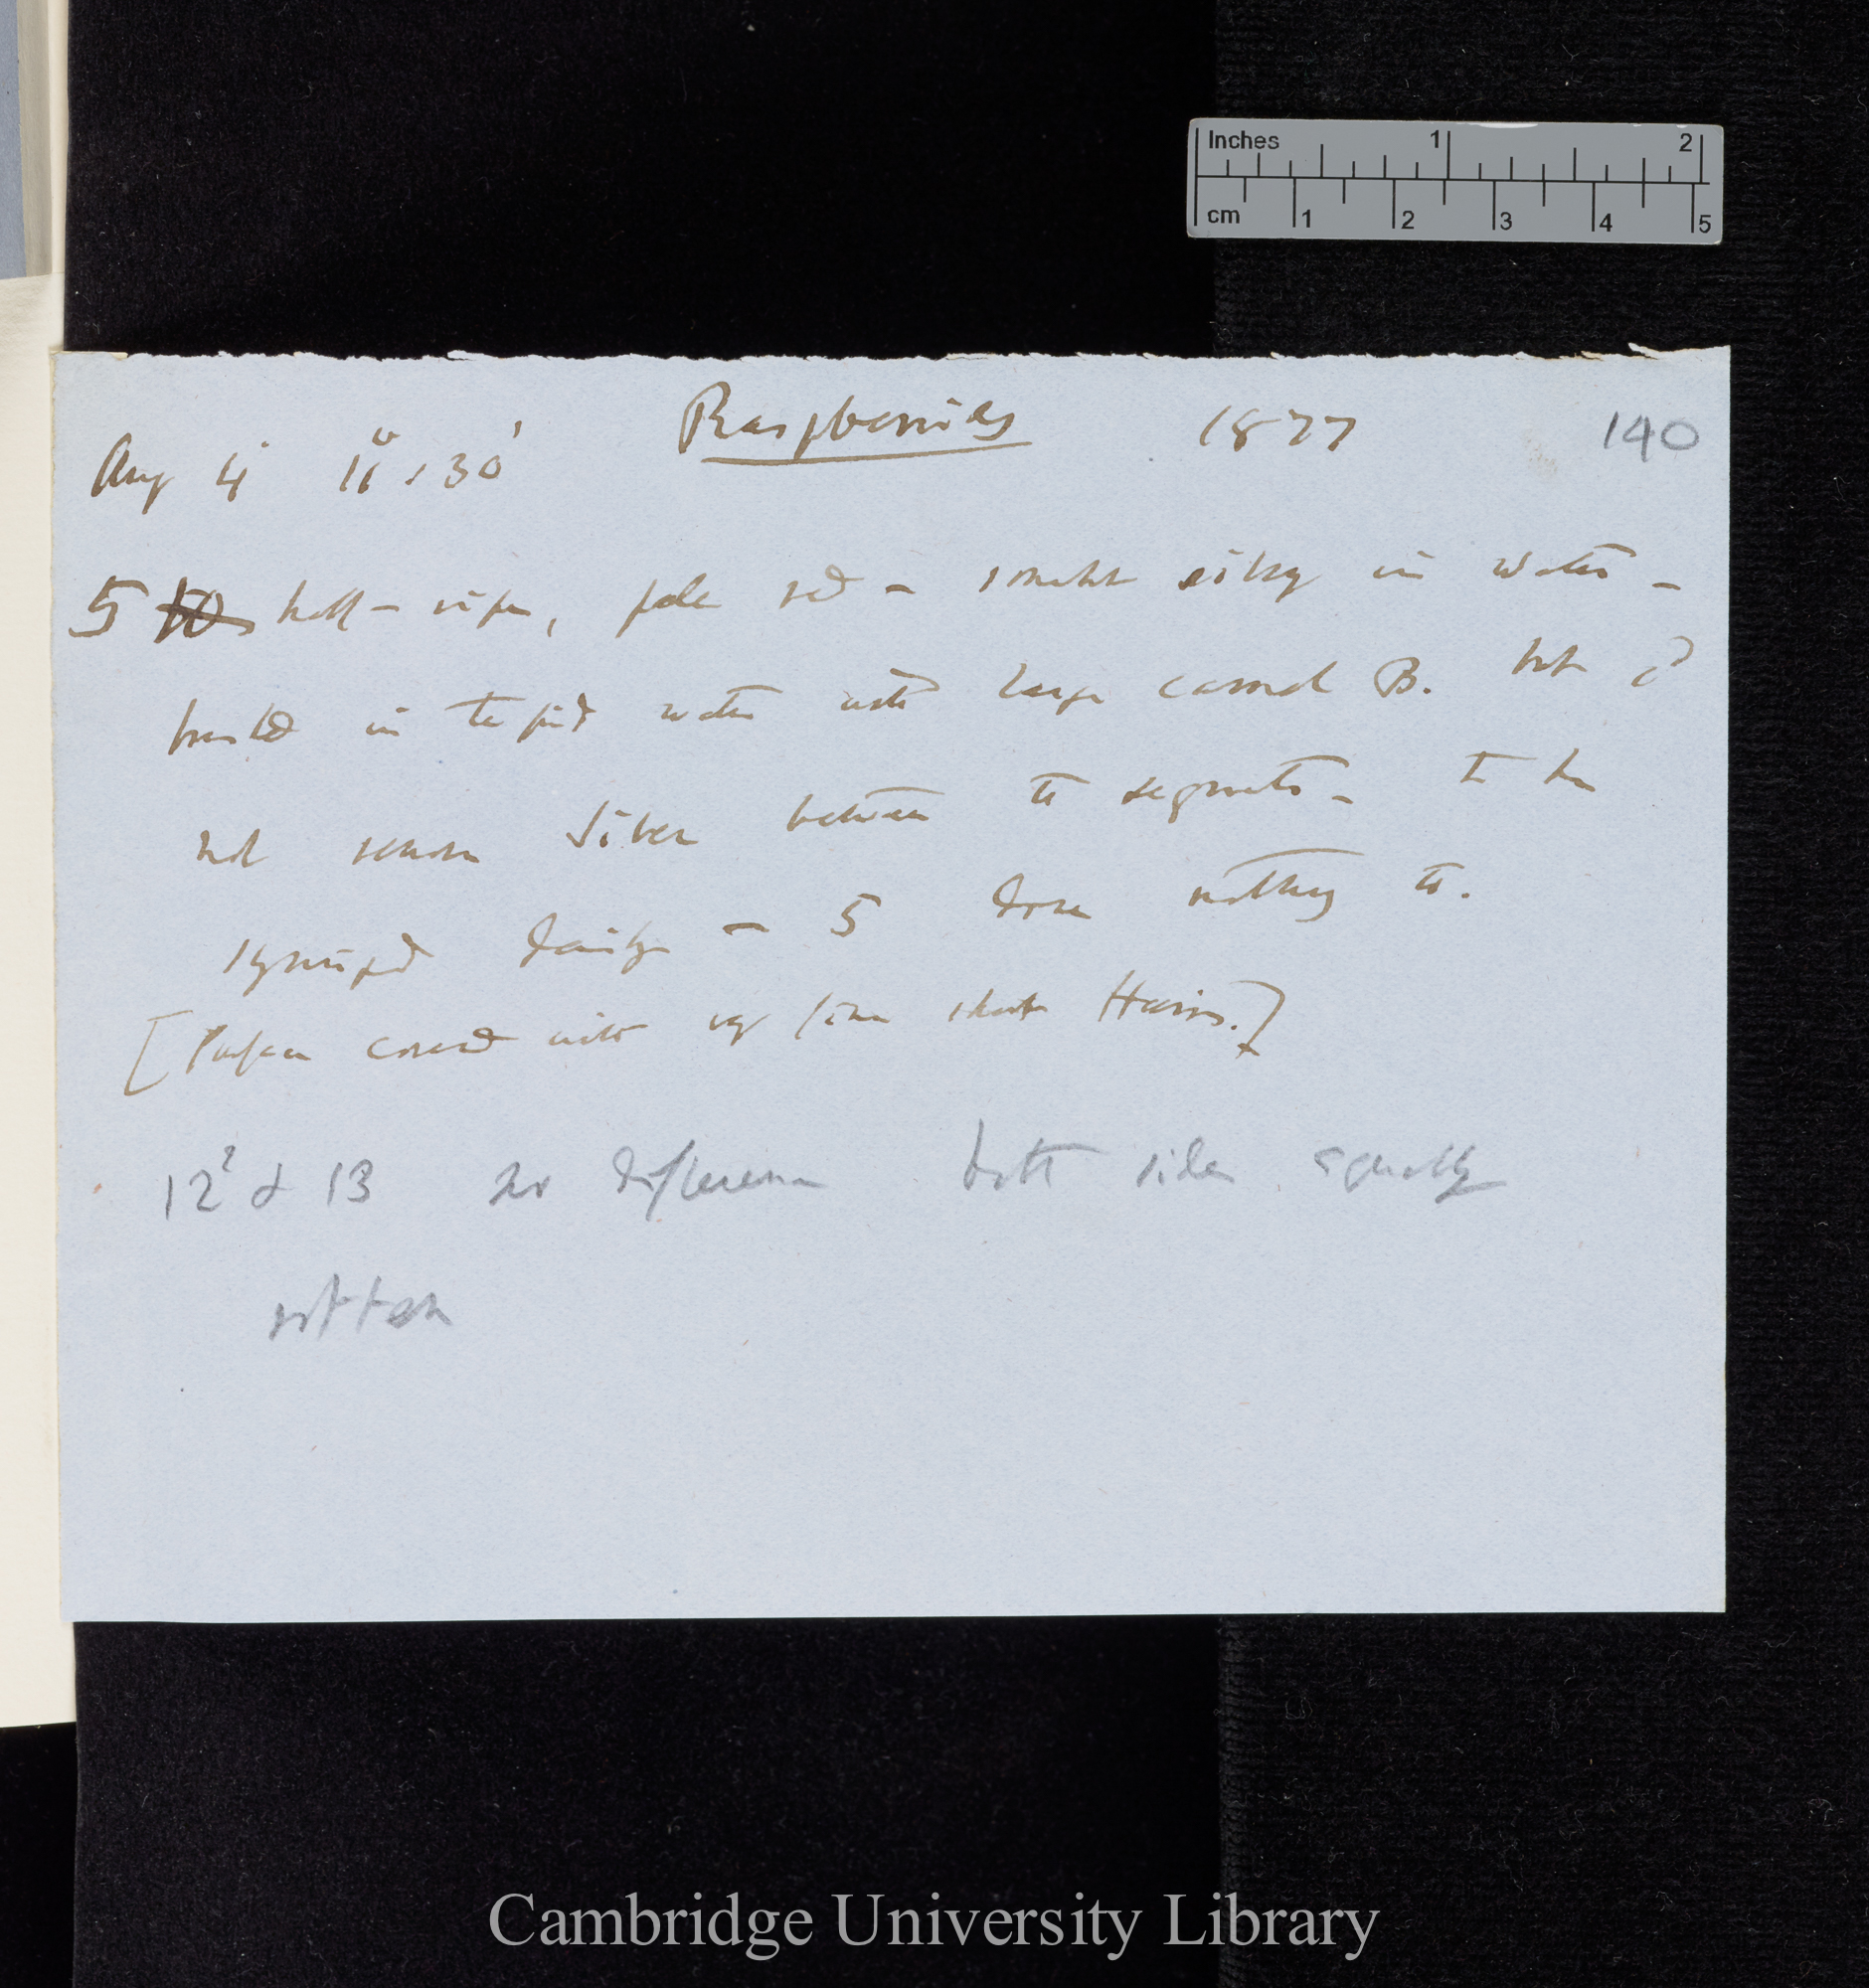 Inches 1 2
cm 1 2 3 4 5
Raspberries 1877 140
Aug 4 11° . 30'
5 10 half-ripe, pale red — somewht silky in water —
brushed in tepid water with large camel B. but d
not remove silver between the segments — to be
syringed daily — 5 done nothing to.
[ Surface covered with very fine short Hairs. ]
12? & 13 no difference both sides equally
rotten
Cambridge University Library